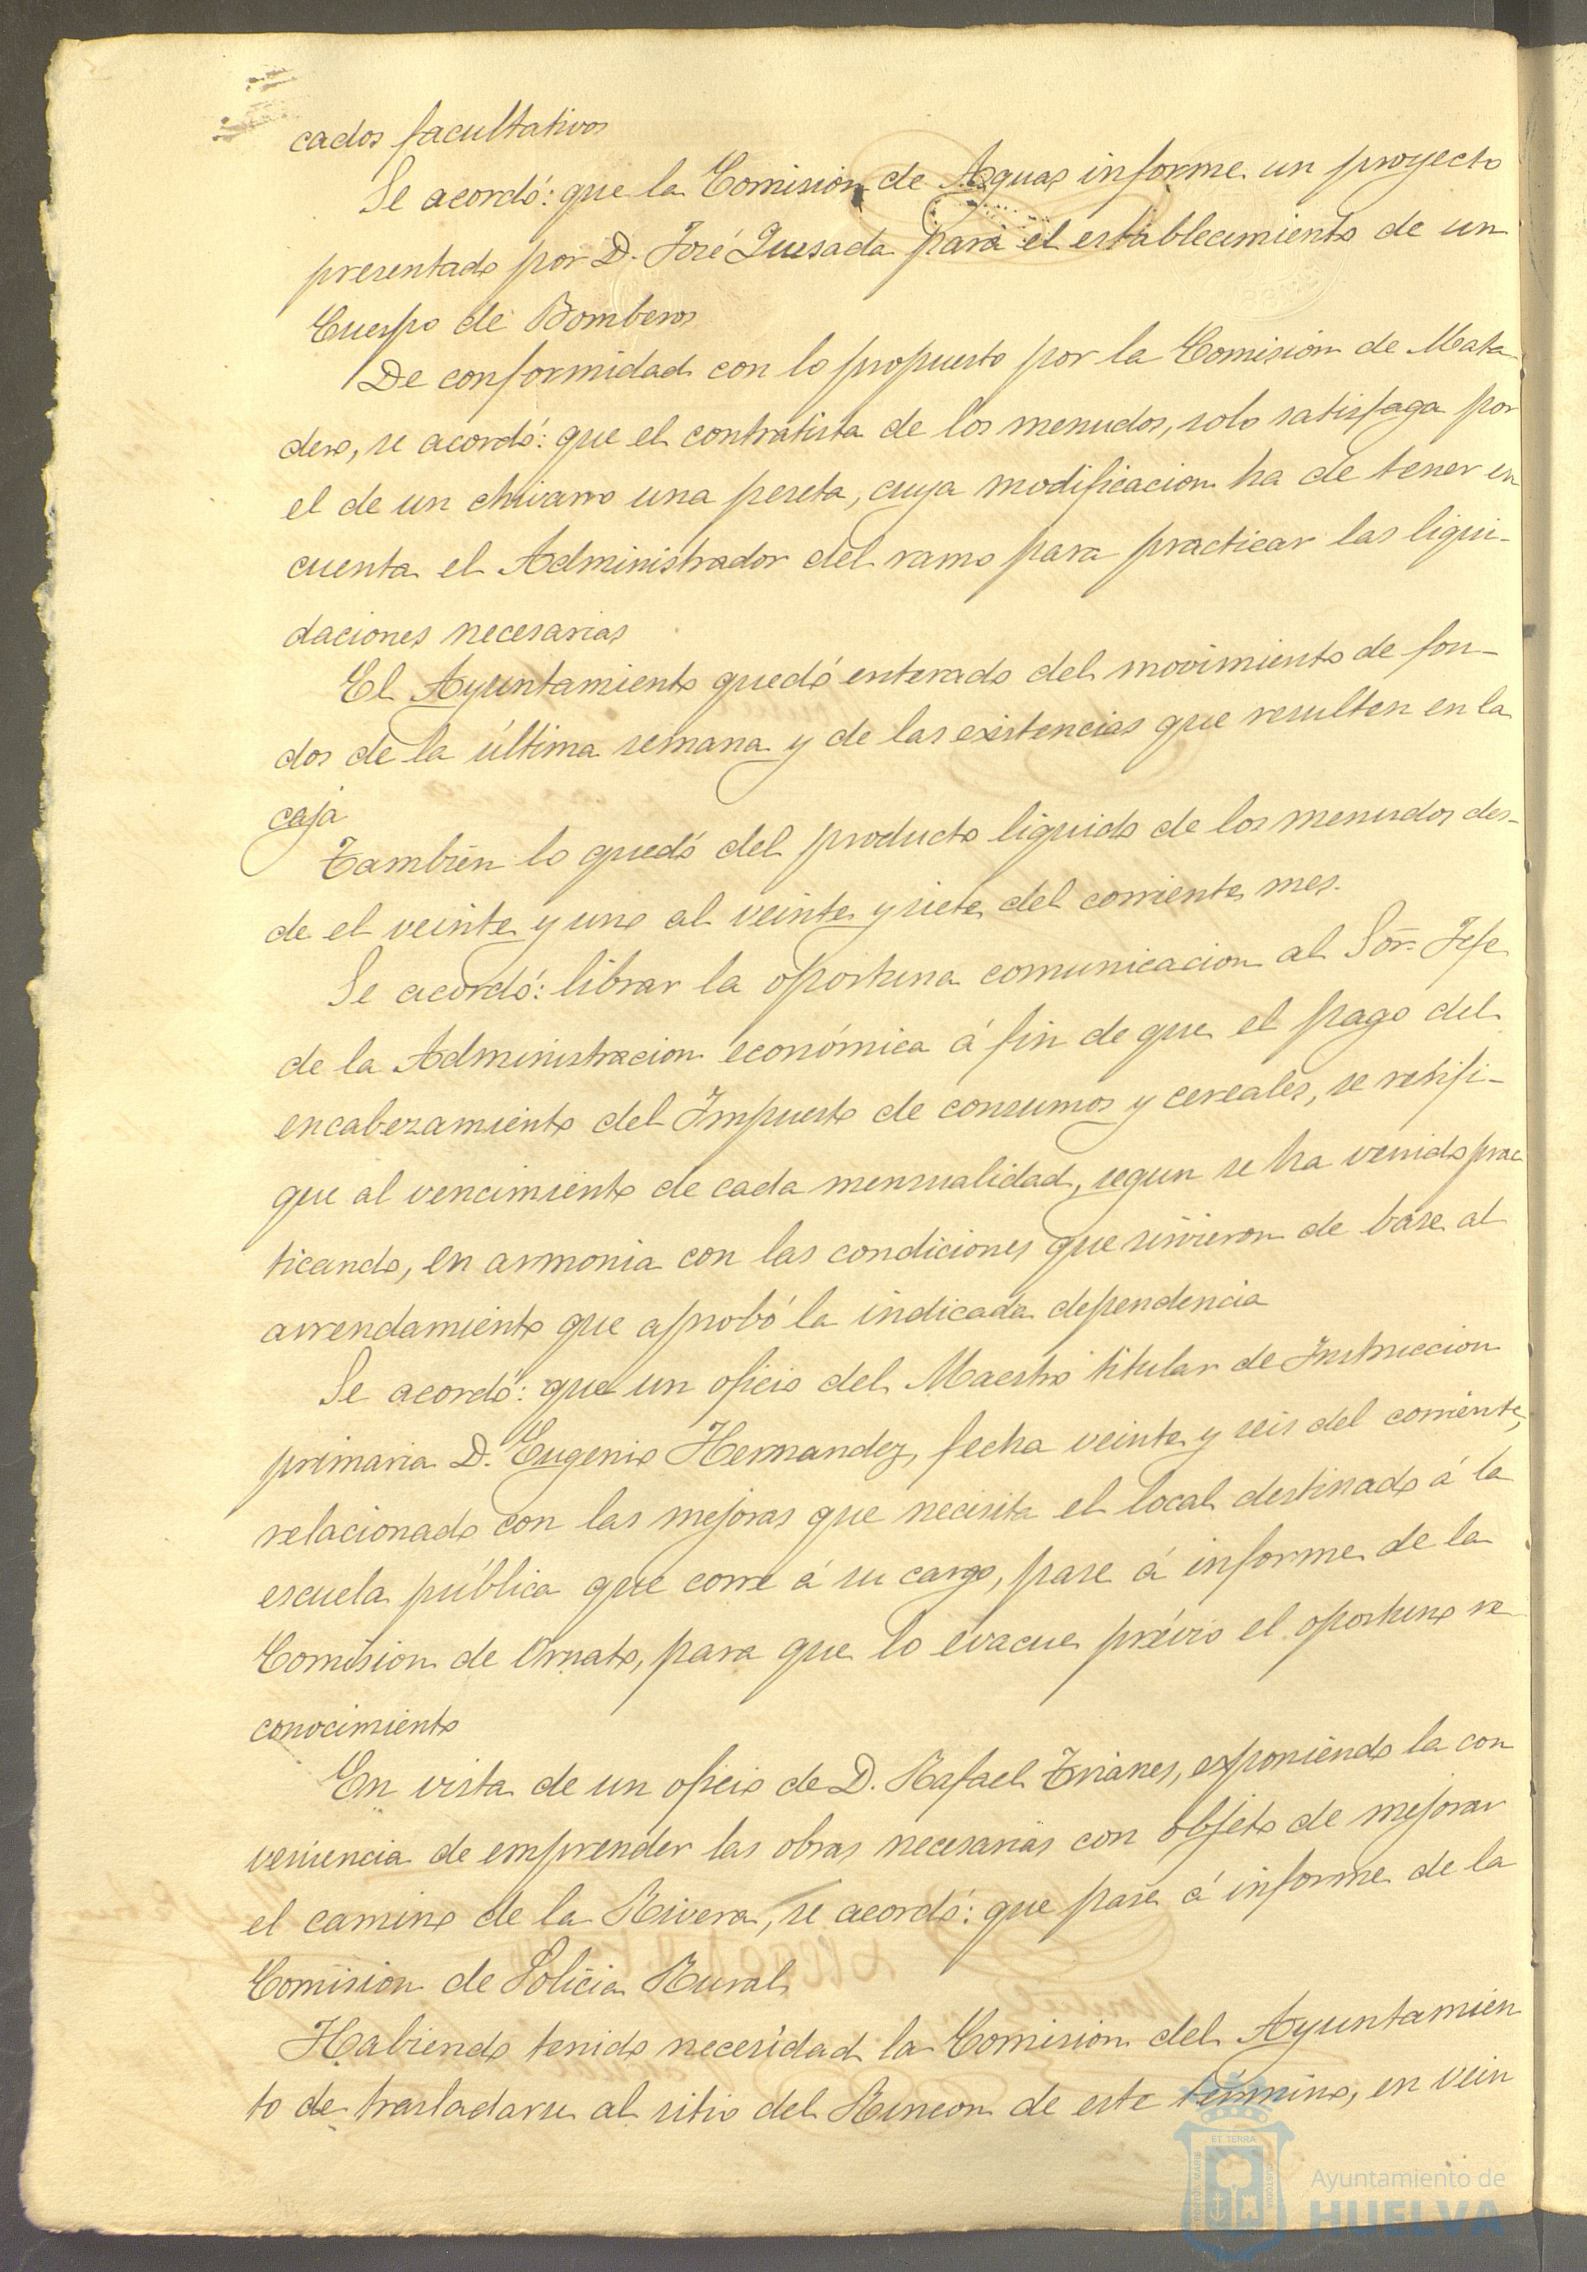 cados facultativos
Se acordó: que la Comision de Aguas informe un proyecto
presentado por D. José Quesada para el establecimiento de un
Cuerpo de Bomberos
De conformidad con lo propuesto por la Comision de Mata
dero, se acordó: que el contratista de los menudos, solo satisfaga por
el de un chivarro una peseta, cuya modificacion ha de tener en
cuenta el Administrador del ramo para practicar las liqui-
daciones necesarias
El Ayuntamiento quedó enterado del movimiento de fon-
dos de la última semana y de las existencias que resulten en la
caja
Tambien lo quedó del producto liquido de los menudos des-
de el veinte y uno al veinte y siete del corriente mes.
Se acordó: librar la oportuna comunicacion al Sor. Jefe
de la Administracion económica á fin de que el pago del
encabezamiento del Impuesto de consumos y cereales, se retifi-
que al vencimiento de cada mensualidad, segun se ha venido prac
ticando, en armonia con las condiciones que sirvieron de base al
arrendamiento que aprobó la indicada dependencia
Se acordó: que un oficio del Maestro titular de Instruccion
primaria D. Eugenio Hernandez, fecha veinte y seis del corriente,
relacionado con las mejoras que necisita el local destinado á la
escuela pública que corre á su cargo, pase á informe de la
Comision de Ornato, para que lo evacue prévio el oportuno re
conocimiento
En vista de un oficio de D. Rafael Trianes, exponiendo la con
veniencia de emprender las obras necesarias con objeto de mejorar
el camino de la Rivera, se acordó: que pase á informe de la
Comision de Policia Rural
Habiendo tenido necesidad la Comision del Ayuntamien
to de trasladarse al sitio del Rincon de este termino, en vein
Ayuntamiento de
HUELVA